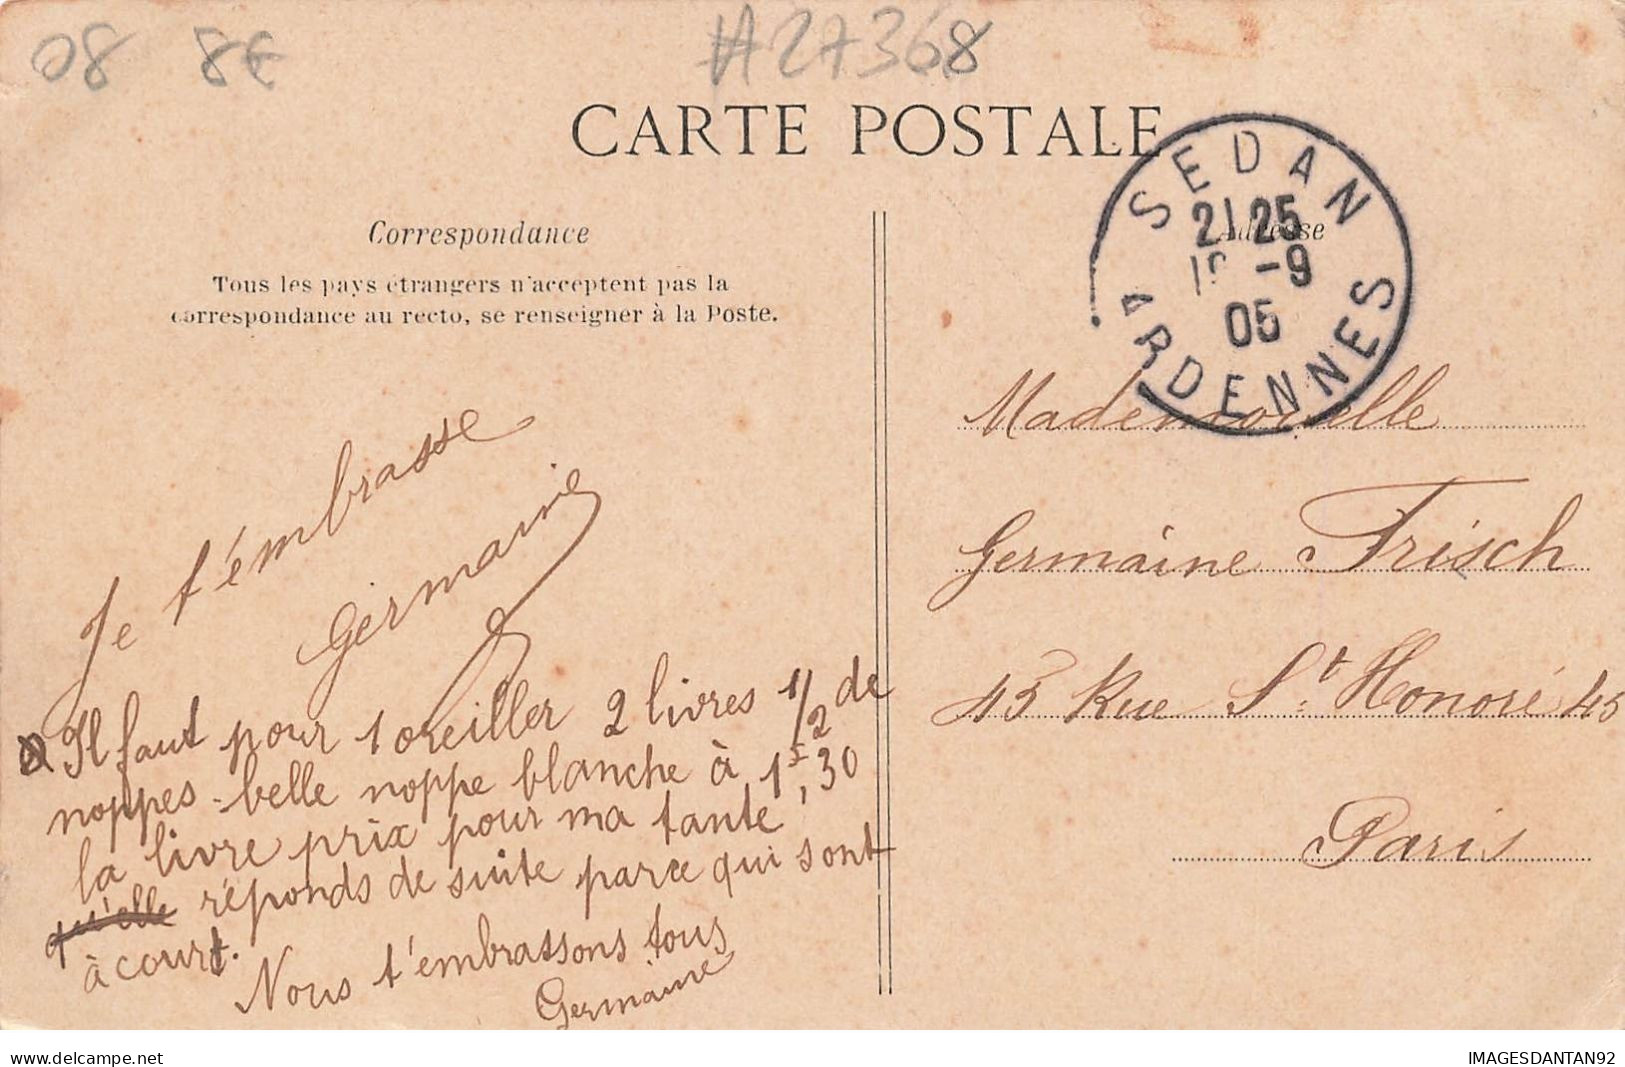 08 8€ #27368
CARTE POSTALE
Correspondance
Tous les pays étrangers n'acceptent pas la
correspondance au recto, se renseigner à la Poste.
Je t'embrasse
Germaine
Il faut pour 1 oreiller 2 livres 1/2 de
noppes - belle noppe blanche à 1F,30
la livre prix pour ma tante
qu'elle réponds de suite parce qui sont
à court.
Nous t'embrassons tous
Germaine
SEDAN
21 25
-9
05
ARDENNES
Adresse
Mademoiselle
Germaine Frisch
45 Rue St. Honoré 45
Paris
delcampe.net
IMAGESDANTAN92